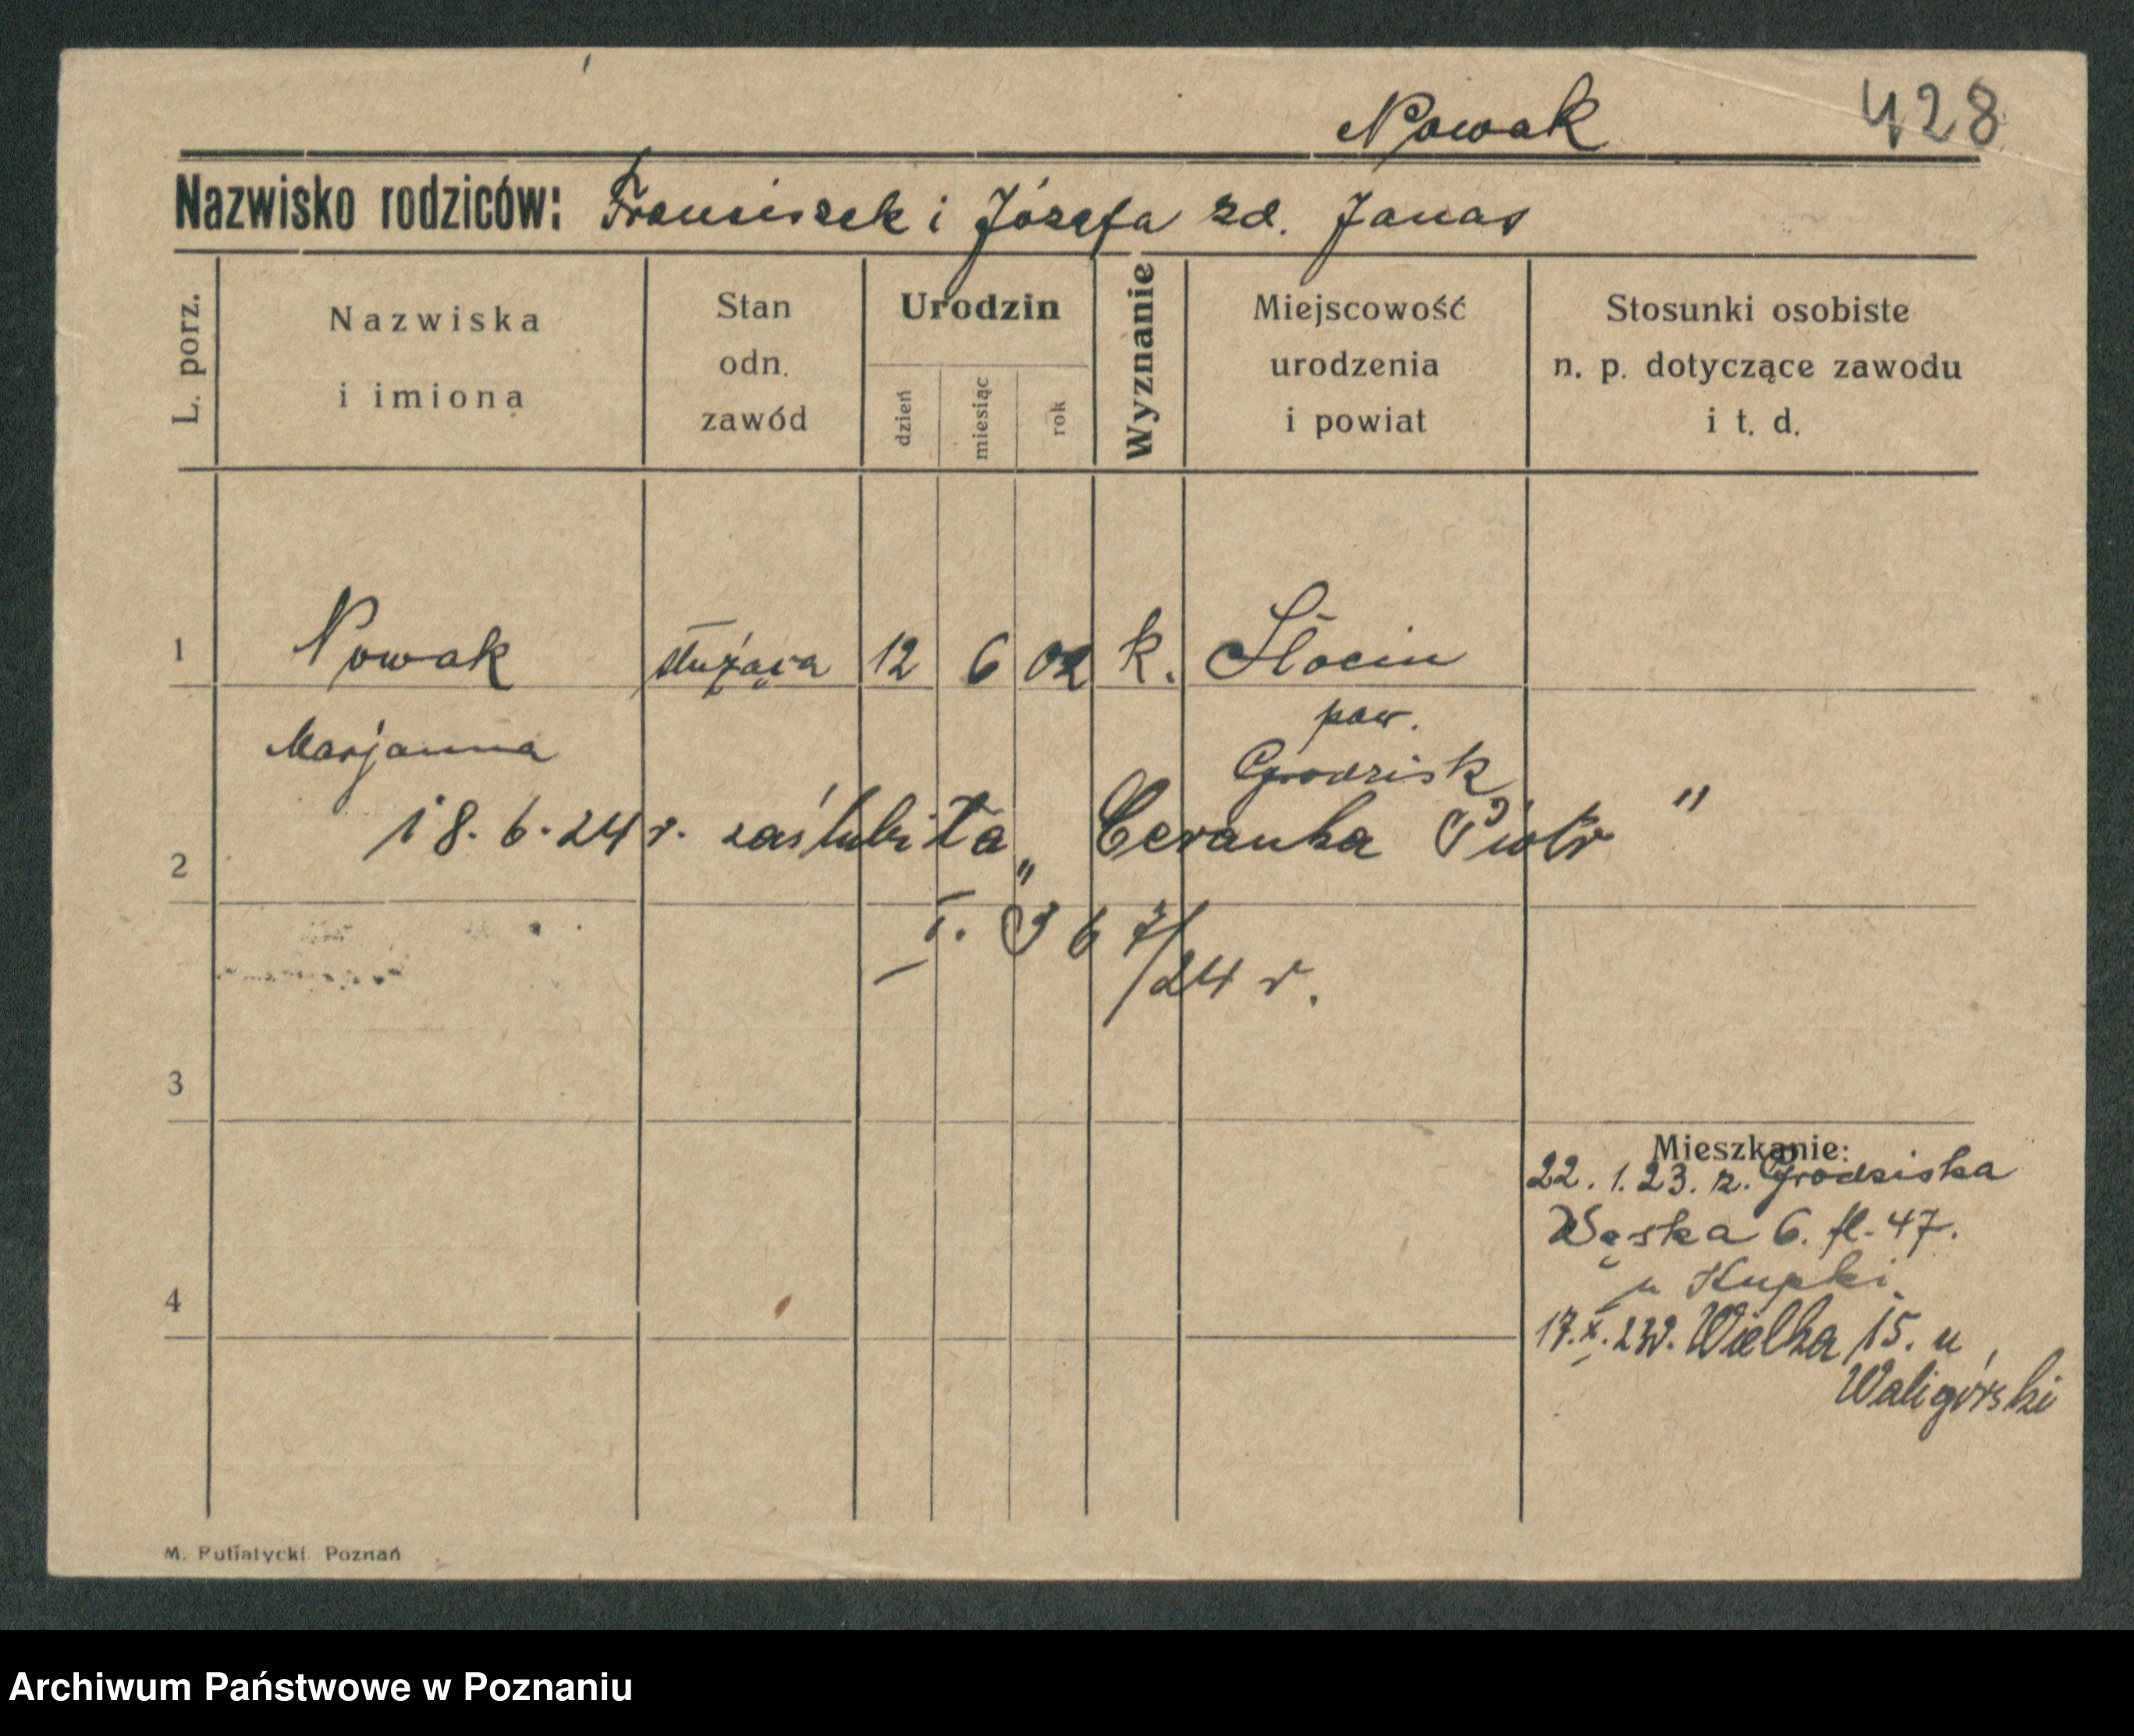 Nowak 428
Nazwisko rodziców: Franciszek i Józefa zd. Janas
L. porz.
Nazwiska i imiona
Stan odn. zawód
Urodzin
dzień miesiąc rok
Wyznanie
Miejscowość urodzenia i powiat
Stosunki osobiste n. p. dotyczące zawodu i t. d.
1 Nowak służąca 12 6 02 k. Słocin
pow.
Marjanna Grodzisk
18. 6. 24 r. zaślubiła „Ceranka Piotr"
2
I. 967/24 r.
3
Mieszkanie:
22. 1. 23. z. Grodziska
Wąska 6. fl. 47.
u Kupki
4
17. X. Wielka 15. u
Waligórski
M. Putiatycki Poznań
Archiwum Państwowe w Poznaniu